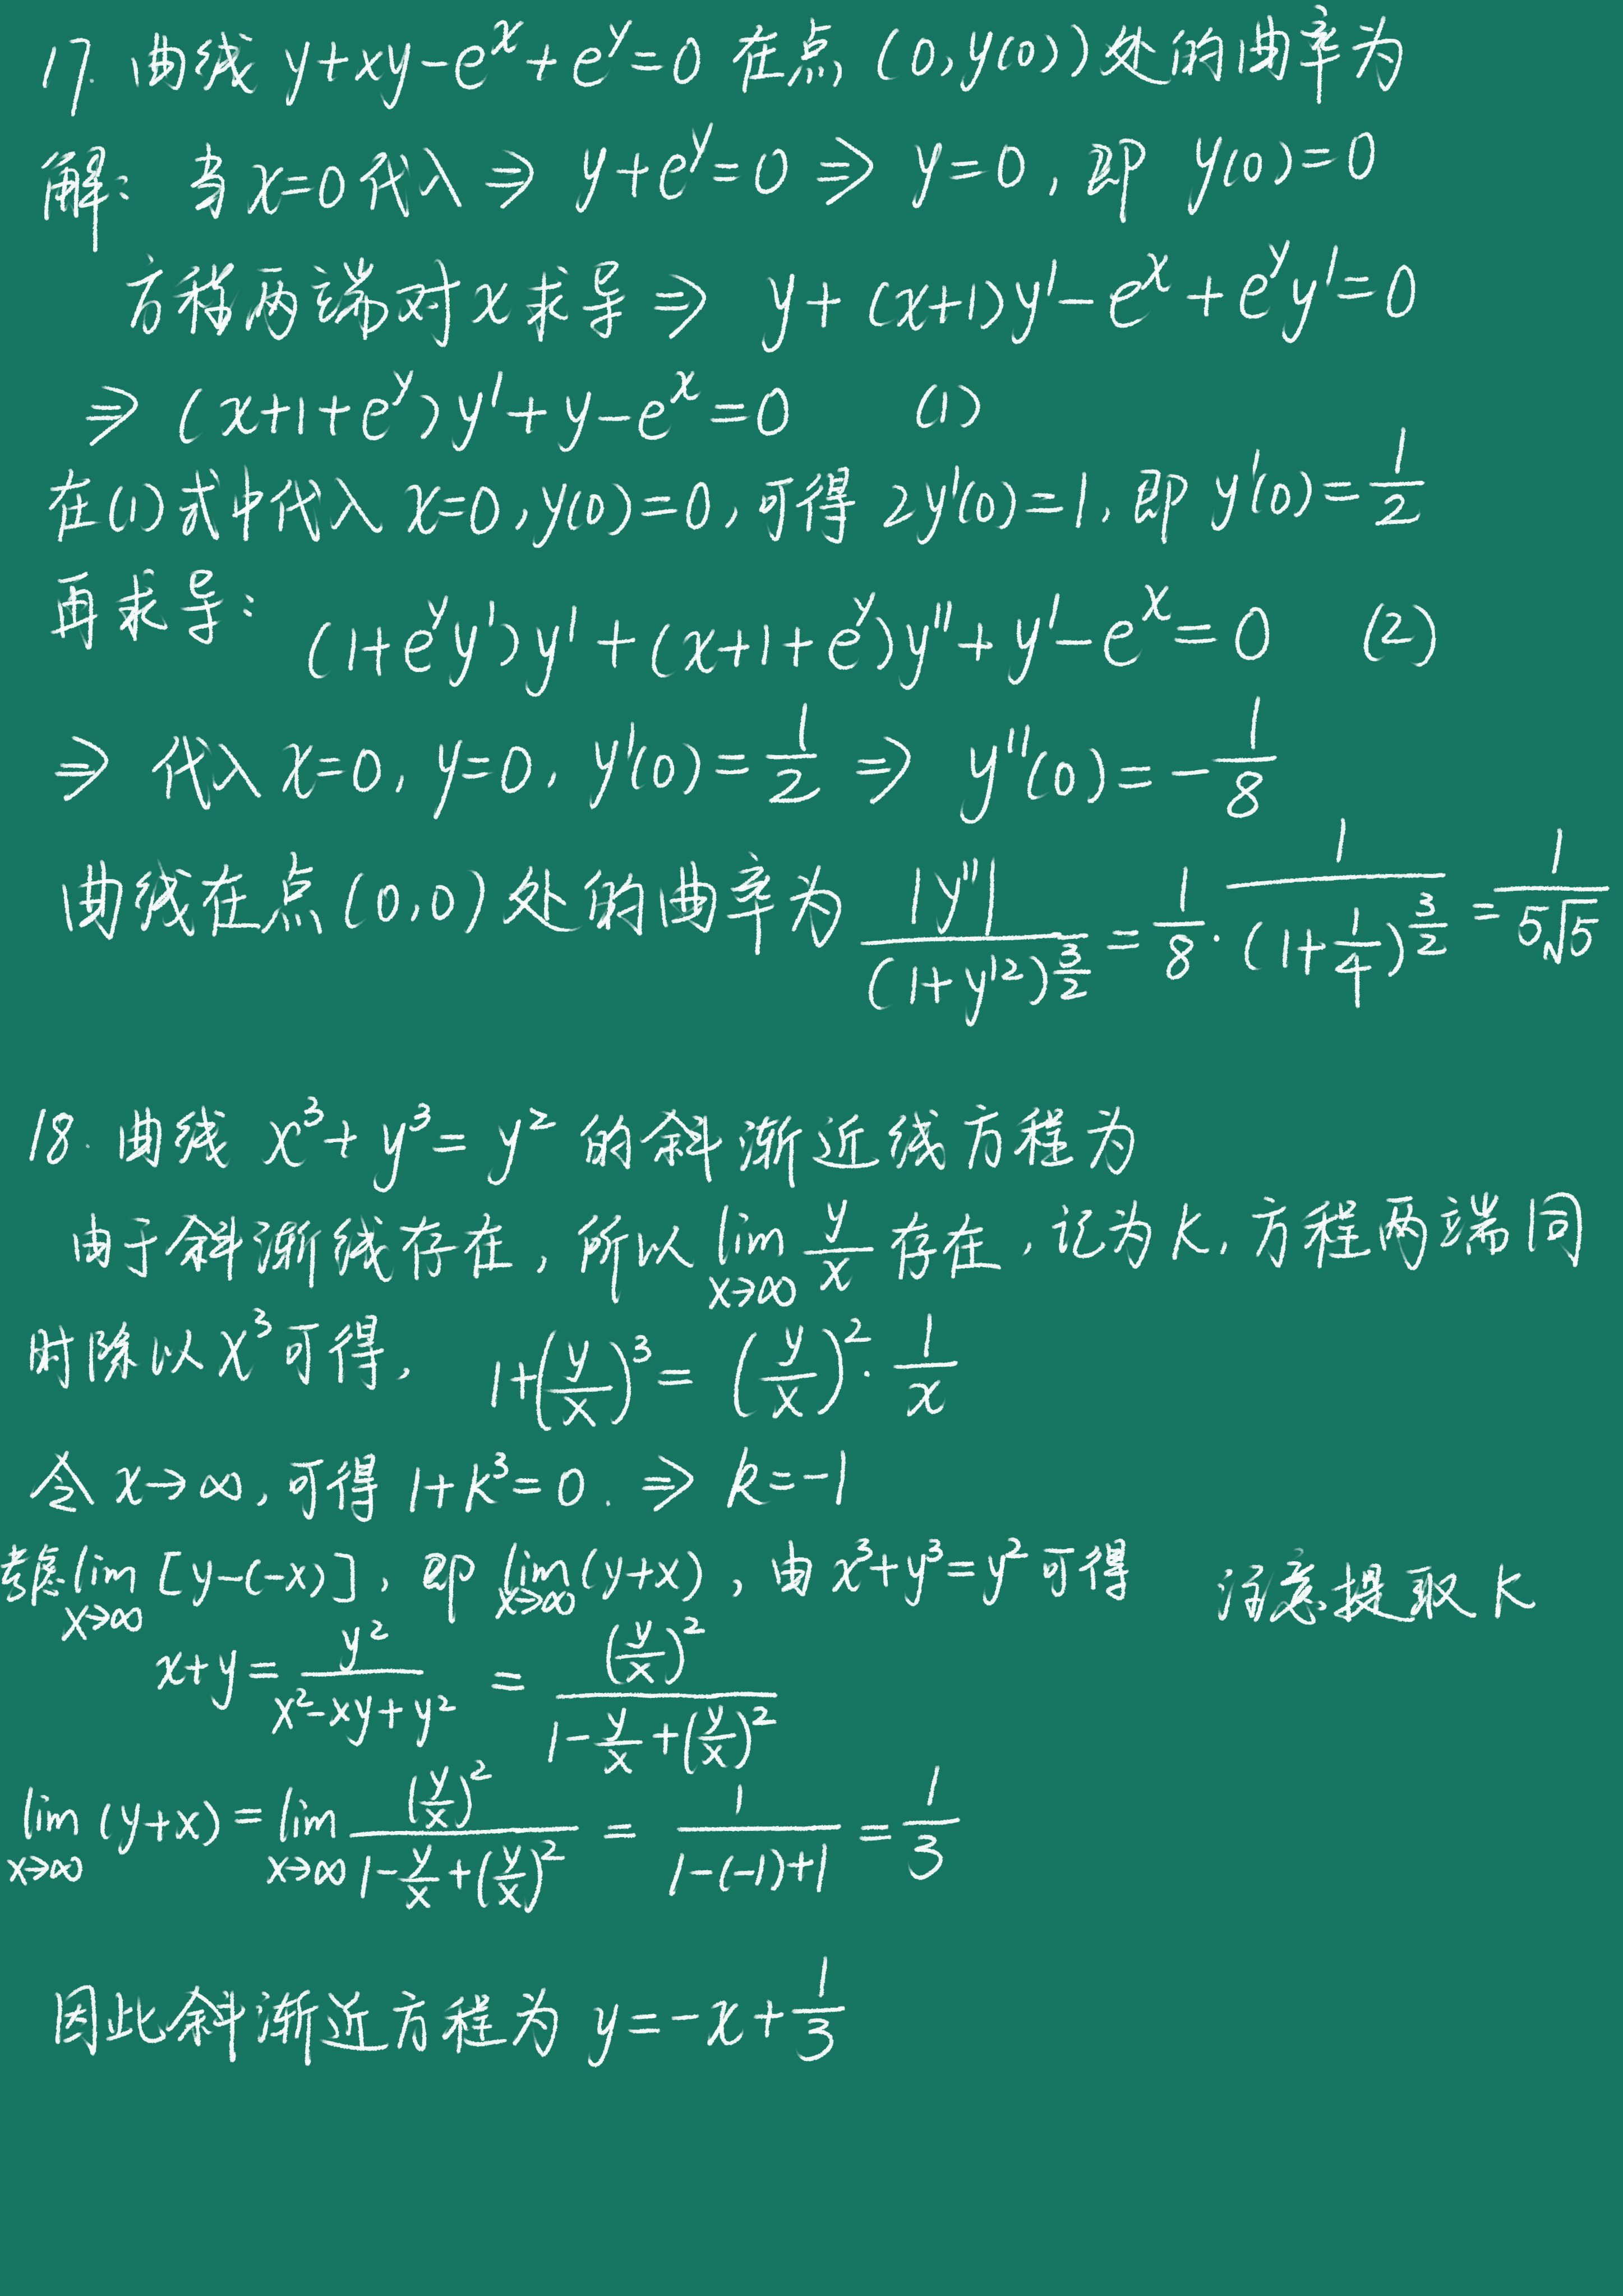 17. 曲线 y+xy-e^x+e^y=0 在点 (0,y(0))处的曲率为
解: 当x=0代入 ⇒ y+e^y=0 ⇒ y=0, 即 y(0)=0
方程两端对x求导 ⇒ y+(x+1)y'-e^x+e^y y'=0
⇒ (x+1+e^y)y'+y-e^x=0 (1)
在(1)式中代入 x=0,y(0)=0,可得 2y'(0)=1,即 y'(0)=1/2
再求导: (1+e^y y')y'+(x+1+e^y)y''+y'-e^x=0 (2)
⇒ 代入 x=0, y=0, y'(0)=1/2 ⇒ y''(0)=-1/8
曲线在点(0,0)处的曲率为 |y''|/(1+y'^2)^(3/2) = 1/8 · 1/(1+1/4)^(3/2) = 1/(5√5)
18. 曲线 x^3+y^3=y^2 的斜渐近线方程为
由于斜渐线存在, 所以 lim_(x→∞) y/x 存在, 记为k, 方程两端同
时除以x^3可得, 1+(y/x)^3=(y/x)^2·1/x
令x→∞,可得 1+k^3=0. ⇒ k=-1
考虑lim_(x→∞) [y-(-x)], 即 lim_(x→∞)(y+x), 由x^3+y^3=y^2可得 注意提取k
x+y=y^2/(x^2-xy+y^2) = (y/x)^2/(1-y/x+(y/x)^2)
lim_(x→∞) (y+x)=lim_(x→∞) (y/x)^2/(1-y/x+(y/x)^2) = 1/(1-(-1)+1) = 1/3
因此斜渐近方程为 y=-x+1/3